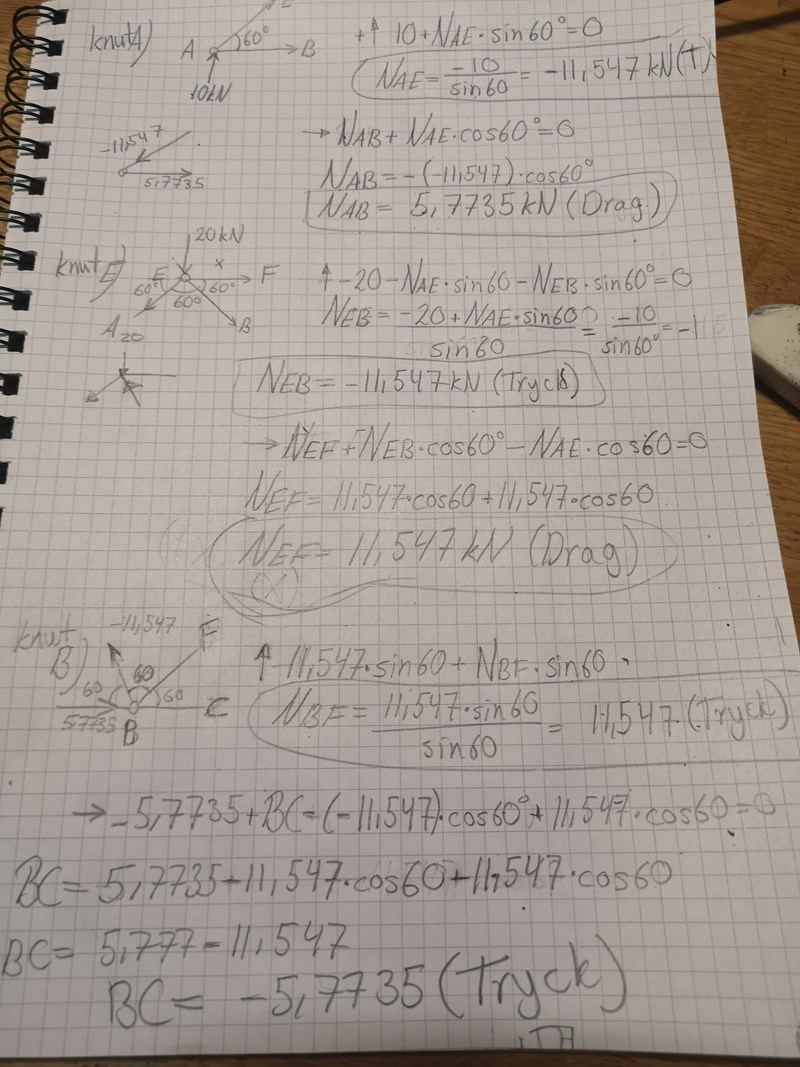 knut A)
A
60°
B
10kN
+↑ 10+NAE·sin60°=0
NAE = -10/sin60 = -11,547 kN (T)
-11,547
5,7735
→ NAB + NAE·cos60°=0
NAB = -(-11,547)·cos60°
NAB = 5,7735 kN (Drag)
knut E)
20kN
E
x
F
60°
60°
60°
A
B
20
↑ -20 - NAE·sin60 - NEB·sin60°=0
NEB = -20 + NAE·sin60/sin60 = -10/sin60° = -11,5
NEB = -11,547 kN (Tryck)
→ NEF + NEB·cos60° - NAE·cos60=0
NEF = 11,547·cos60 + 11,547·cos60
NEF = 11,547 kN (Drag)
knut B)
-11,547
F
60
60
60
5,7735
B
C
↑ -11,547·sin60 + NBF·sin60
NBF = 11,547·sin60/sin60 = 11,547 (Tryck)
→ -5,7735+BC=(-11,547)·cos60°+11,547·cos60=0
BC = 5,7735-11,547·cos60+11,547·cos60
BC = 5,777-11,547
BC = -5,7735 (Tryck)